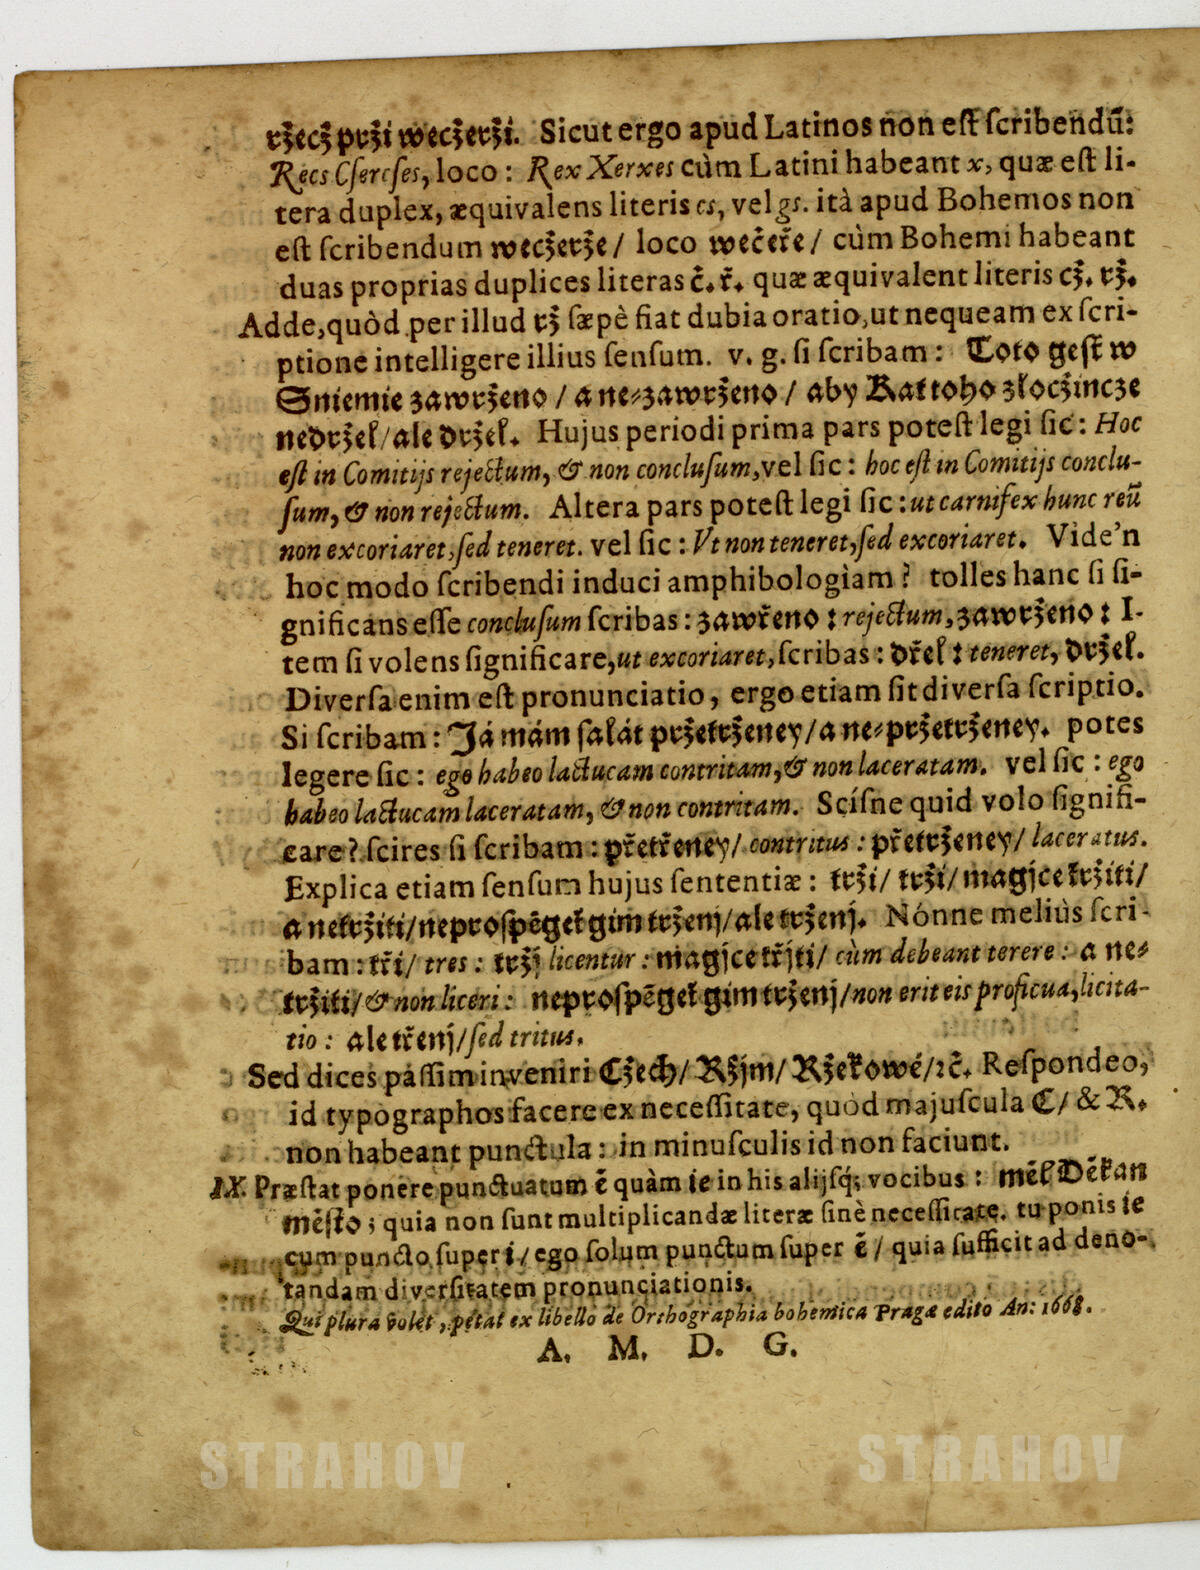 rżecż prżi wecżerżi. Sicut ergo apud Latinos non eſt ſcribendū:
Recs Cſercſes, loco: Rex Xerxes cùm Latini habeant x, quæ eſt li-
tera duplex, æquivalens literis cs, vel gs. ità apud Bohemos non
eſt ſcribendum wecżerże/ loco wečeře/ cùm Bohemi habeant
duas proprias duplices literas č. ř. quæ æquivalent literis cż. rż.
Adde, quòd per illud rż ſæpè fiat dubia oratio, ut nequeam ex ſcri-
ptione intelligere illius ſenſum. v. g. ſi ſcribam: Toto geſt w
Sniemie zawrżeno/ a ne⸗zawrżeno/ aby Kat toho złocżincze
nedrżeł/ ale drżeł. Hujus periodi prima pars poteſt legi ſic: Hoc
eſt in Comitijs rejectum, & non concluſum, vel ſic: hoc eſt in Comitijs conclu-
ſum, & non rejectum. Altera pars poteſt legi ſic: ut carnifex hunc reū
non excoriaret, ſed teneret. vel ſic: Vt non teneret, ſed excoriaret. Vide'n
hoc modo ſcribendi induci amphibologìam? tolles hanc ſi ſi-
gnificans eſſe concluſum ſcribas: zawřeno: rejectum, zawrżeno: I-
tem ſi volens ſignificare, ut excoriaret, ſcribas: dřeł: teneret, drżeł.
Diverſa enim eſt pronunciatio, ergo etiam ſit diverſa ſcriptio.
Si ſcribam: Já mám ſałát prżetrżeney/ a ne⸗prżetrżeney. potes
legere ſic: ego habeo lactucam contritam, & non laceratam. vel ſic: ego
habeo lactucam laceratam, & non contritam. Scíſne quid volo ſignifi-
care? ſcires ſi ſcribam: přetřeney/ contritus: přetrżeney/ laceratus.
Explica etiam ſenſum hujus ſententiæ: trżi/ trżi/ magjce trżiti/
a netrżiti/ neproſpěget gim trżenj/ ale trżenj. Nónne meliùs ſcri-
bam: tři/ tres: trżj licentur: magjce třjti/ cùm debeant terere: a ne⸗
trżiti/ & non liceri: neproſpěget gim trżenj/ non erit eis proficua, licita-
tio: ale třenj/ ſed tritus.
Sed dices paſſim inveniri Cżech/ Rżjm/ Rżekowé/ ꝛč. Reſpondeo,
id typographos facere ex neceſſitate, quòd majuſcula C/ & R.
non habeant punctula: in minuſculis id non faciunt.
IX. Præſtat ponere punctuatum ě quàm ie in his alijſq; vocibus: měl Děkan
měſto; quia non ſunt multiplicandæ literæ ſinè neceſſitate. tu ponis ie
cum puncto ſuper i/ ego ſolum punctum ſuper ě/ quia ſufficit ad deno-
tandam diverſitatem pronunciationis.
Qui plura volet, petat ex libello de Orthographia bohemica Pragæ edito An: 1668.
A. M. D. G.
STRAHOV STRAHOV